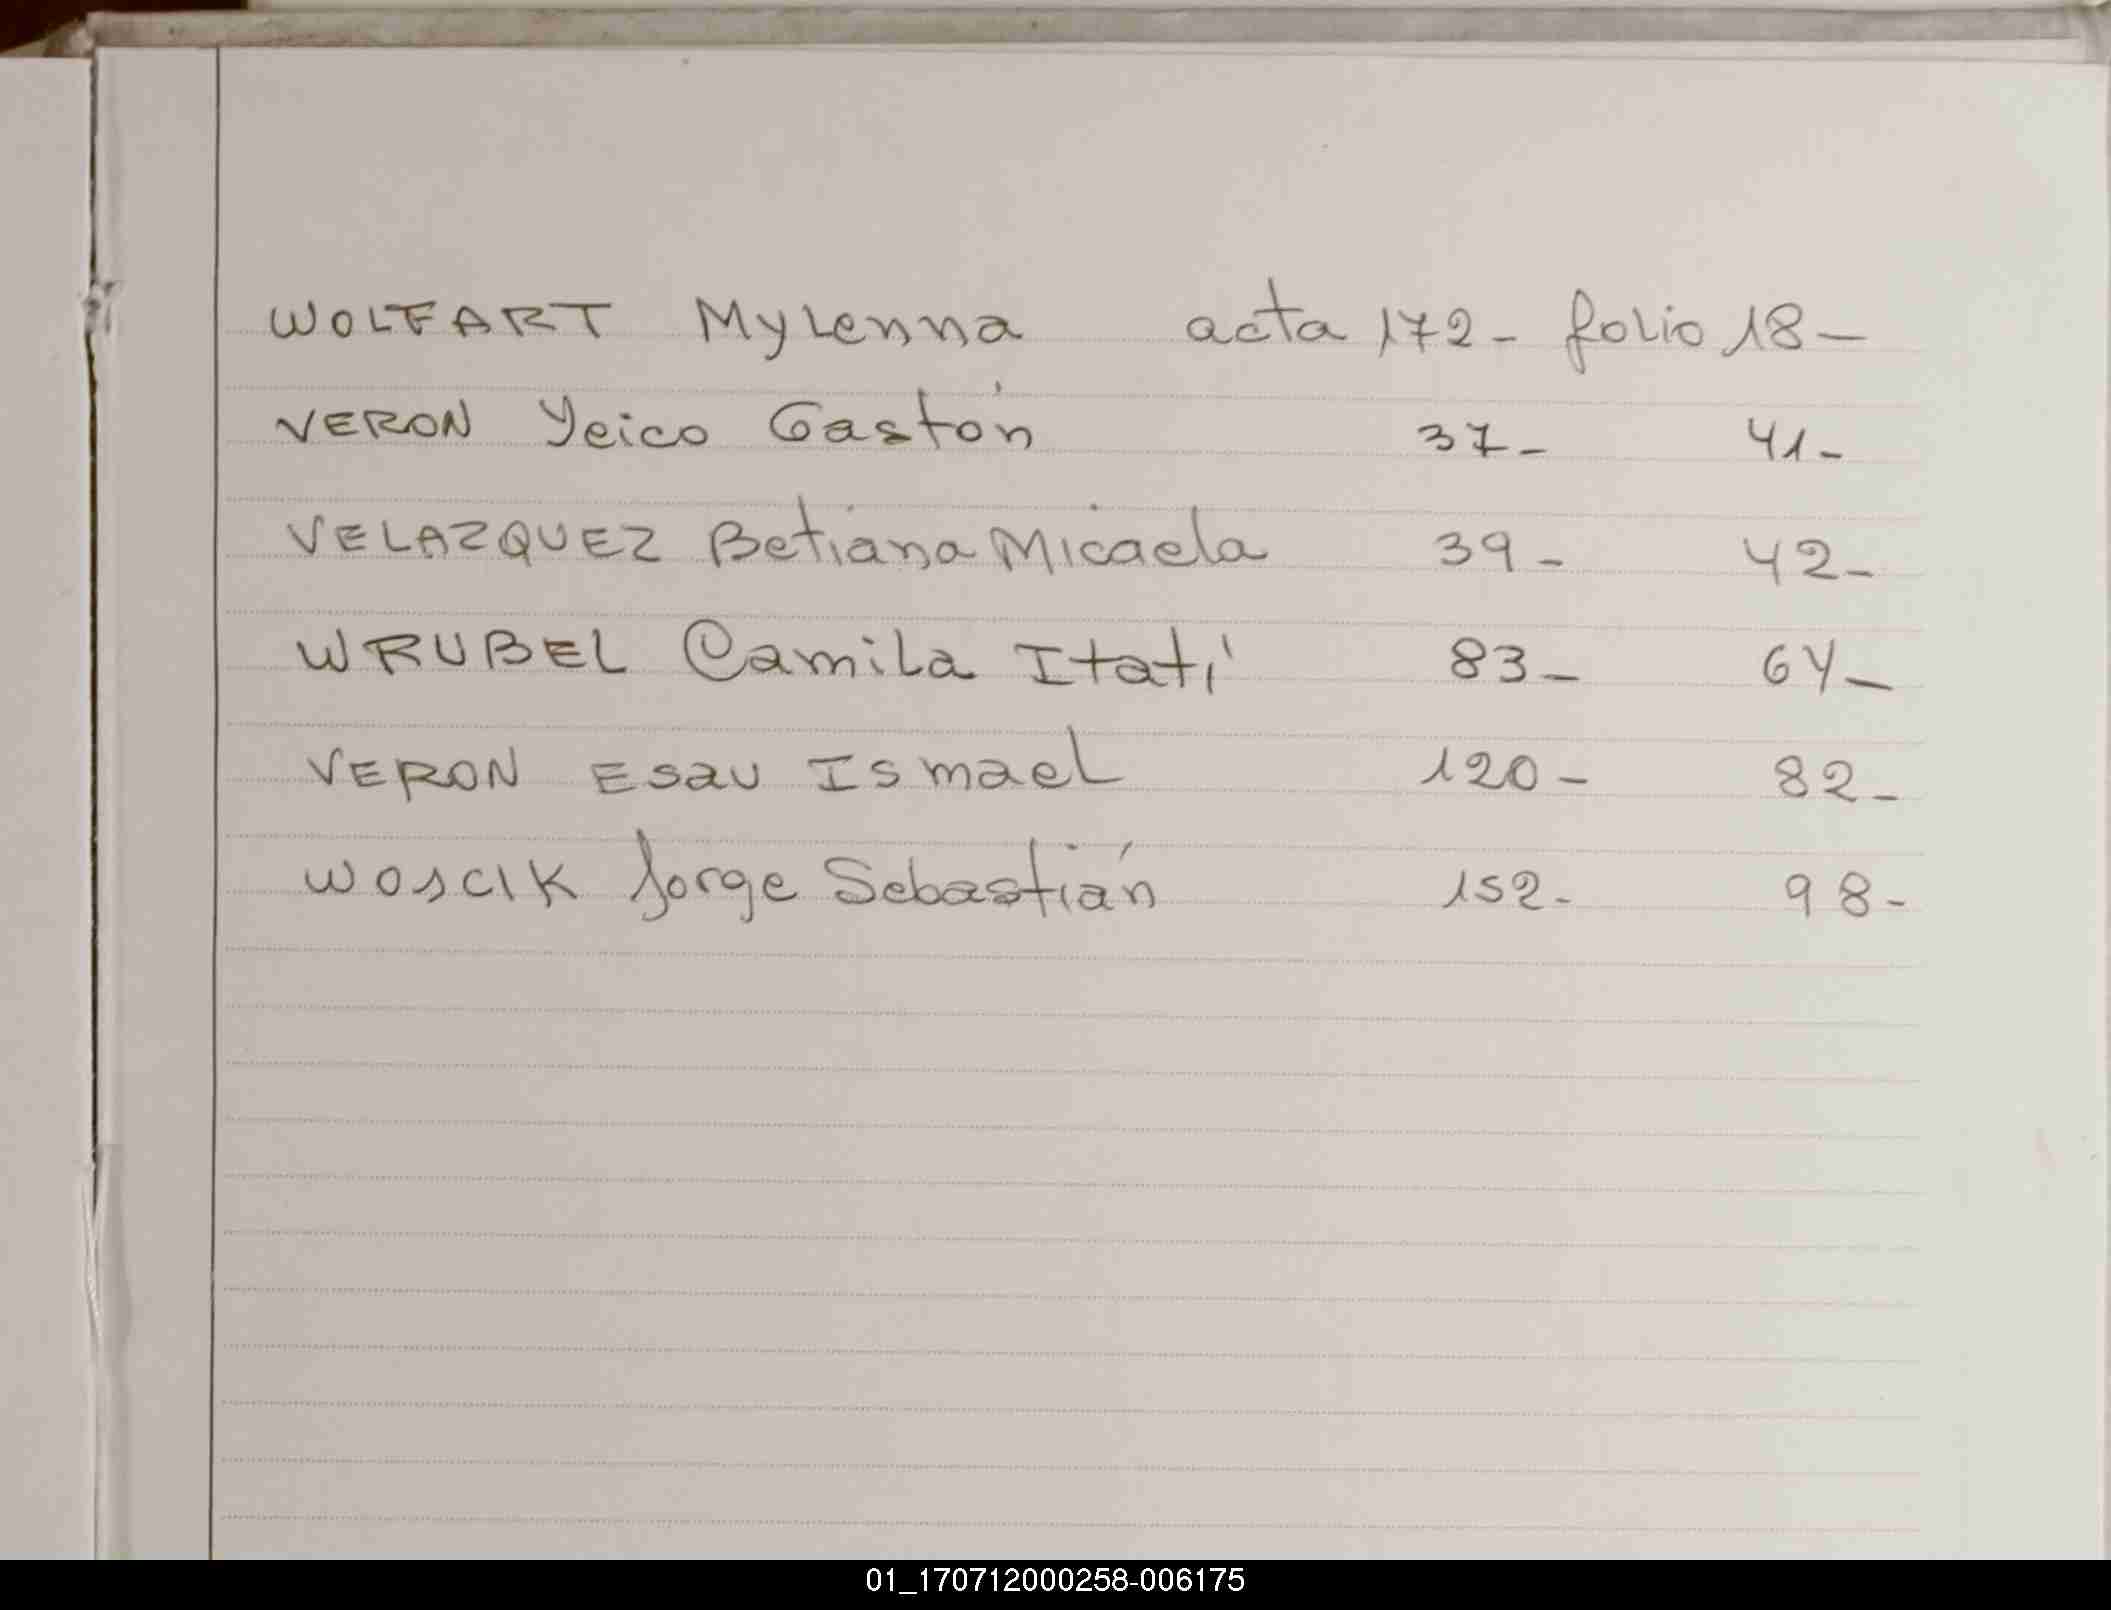 WOLFART Mylenna acta 172- folio 18-
VERON Yeico Gastón 37- 41-
VELAZQUEZ Betiana Micaela 39- 42-
WRUBEL Camila Itatí 83- 64-
VERON Esau Ismael 120- 82-
WOSCIK Jorge Sebastián 152- 98-
01_170712000258-006175